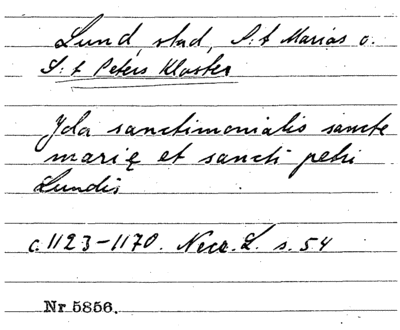 Lund, stad, S:t Marias o.
S:t Peters Kloster
Ida sanctimonialis sancte
marię et sancti petri
Lundis
c. 1123-1170. Necr. L. s. 54
Nr 5856.